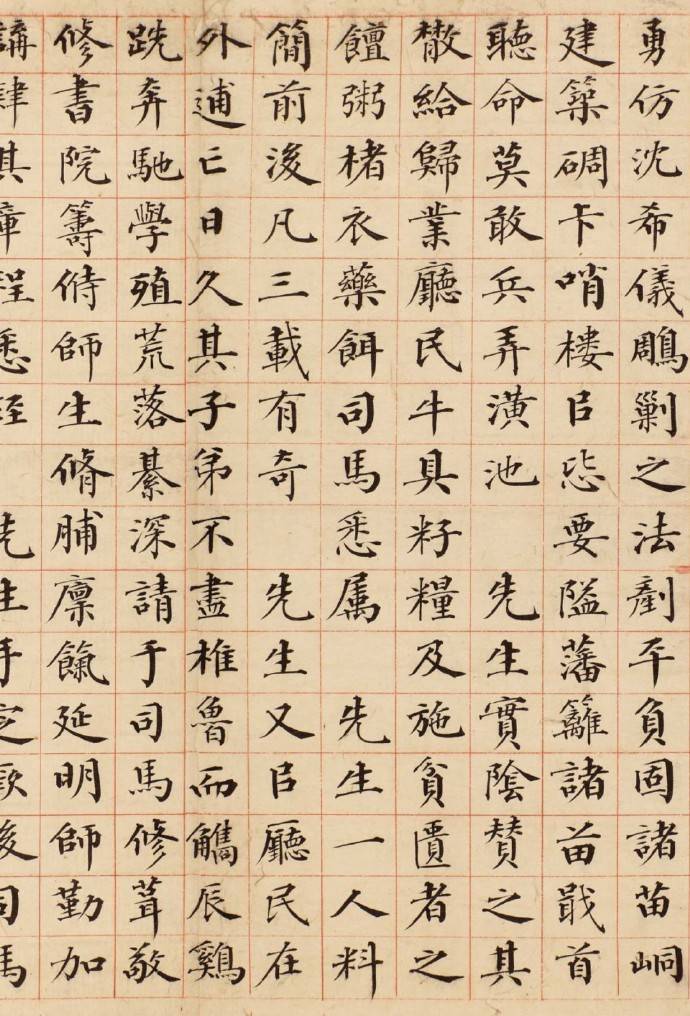 勇仿沈希儀鵰剿之法剷平負固諸苗峒
建築碉卡哨楼㠯㤨要隘藩籬諸苗戢首
聽命莫敢兵弄潢池 先生實陰贊之其
散給歸業廳民牛具籽糧及施貧匱者之
饘粥楮衣藥餌司馬悉属 先生一人料
簡前後凡三載有奇 先生又㠯廳民在
外逋亡日久其子弟不盡椎魯而觿辰鷄
跣奔馳學殖荒落綦深請于司馬修葺敬
修書院籌偫師生脩脯廪餼延明師勤加
講肄其章程悉經 先生手定厥後司馬